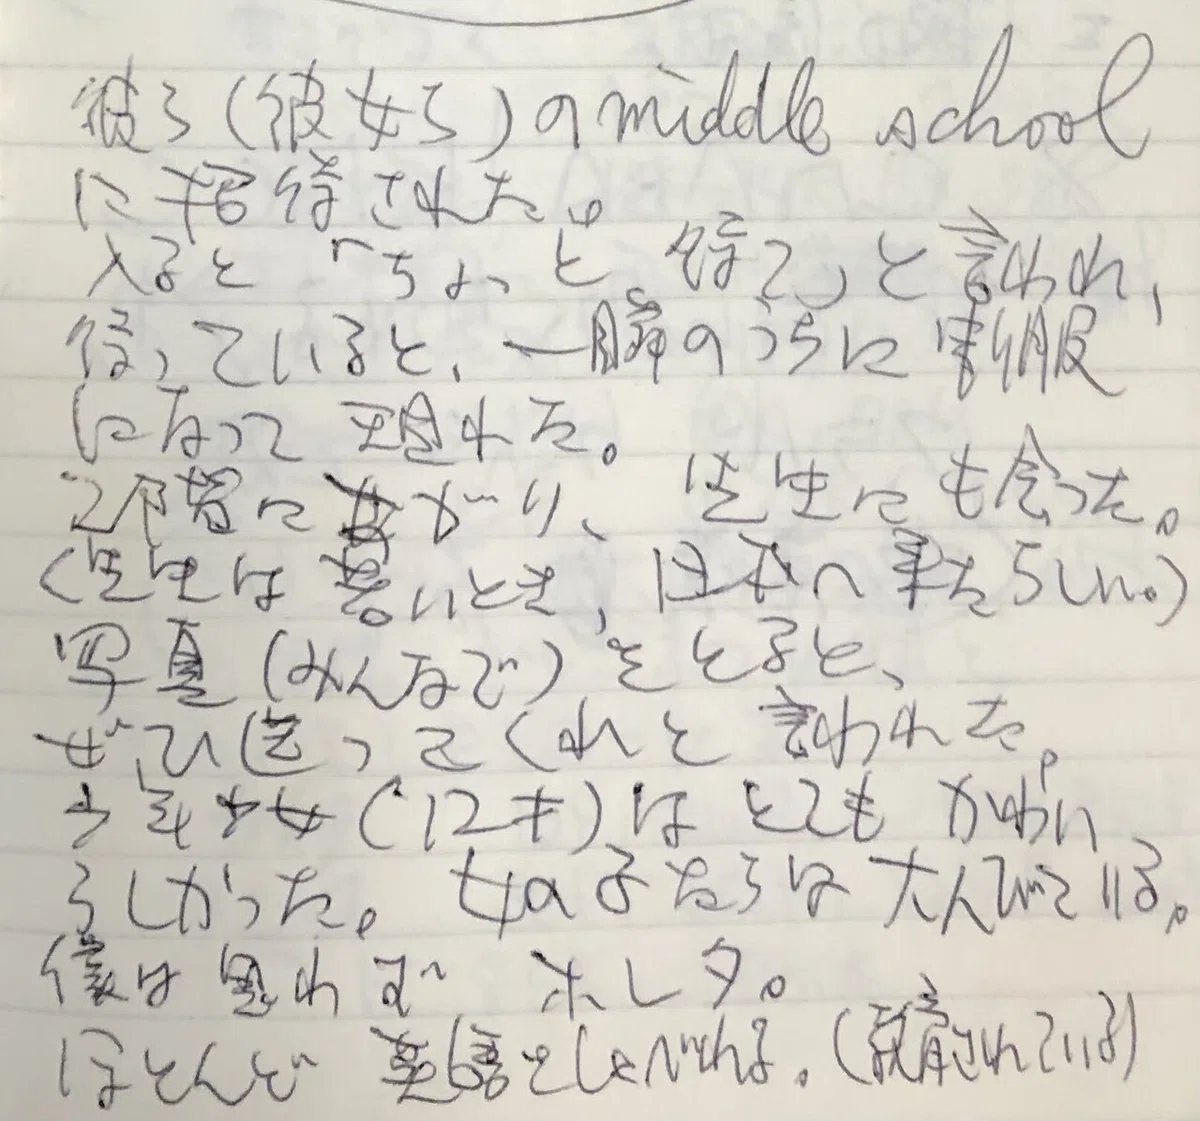 彼ら(彼女ら)のmiddle school
に招待された。
入ると「ちょっと待て」と言われ、
待っていると、一瞬のうちに制服
になって現れた。
2階に上がり、先生にも会った。
(先生は若いとき、日本へ来たらしい。)
写真(みんなで)をとると、
ぜひ送ってくれと言われた。
少年少女(12才)はとてもかわい
らしかった。女の子たちは大人びている。
僕は思わずホレタ。
ほとんど英語をしゃべれる。(教育されている)